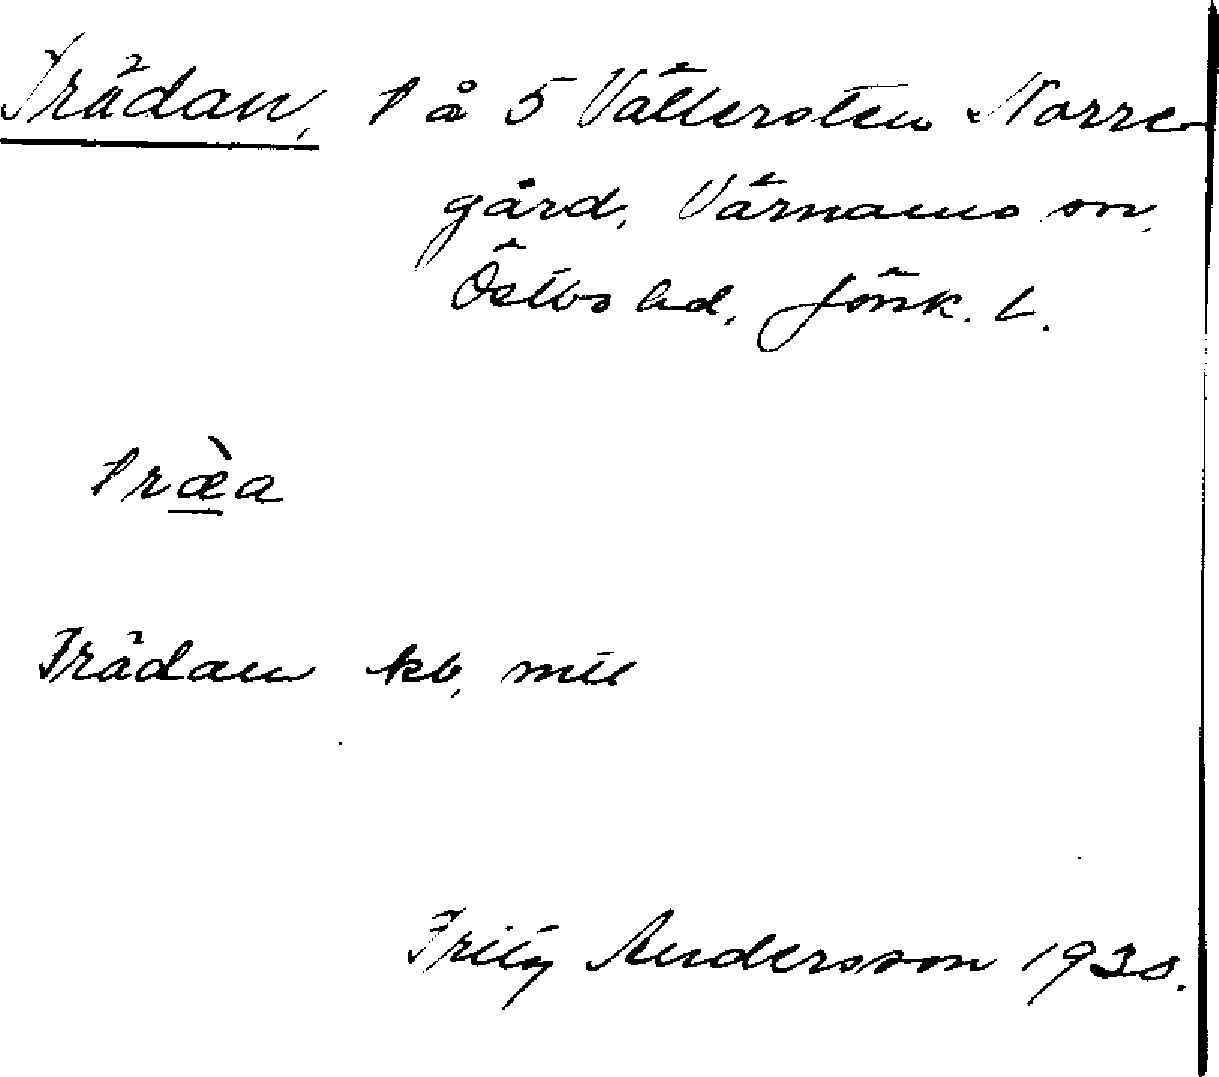 Trädan, t å 5 Vällersten Norre-
gård, Värnamo sn,
Östbo hd, Jönk. L.
træ̀a
Trädan kb, mtl
Fritz Andersson 1930.